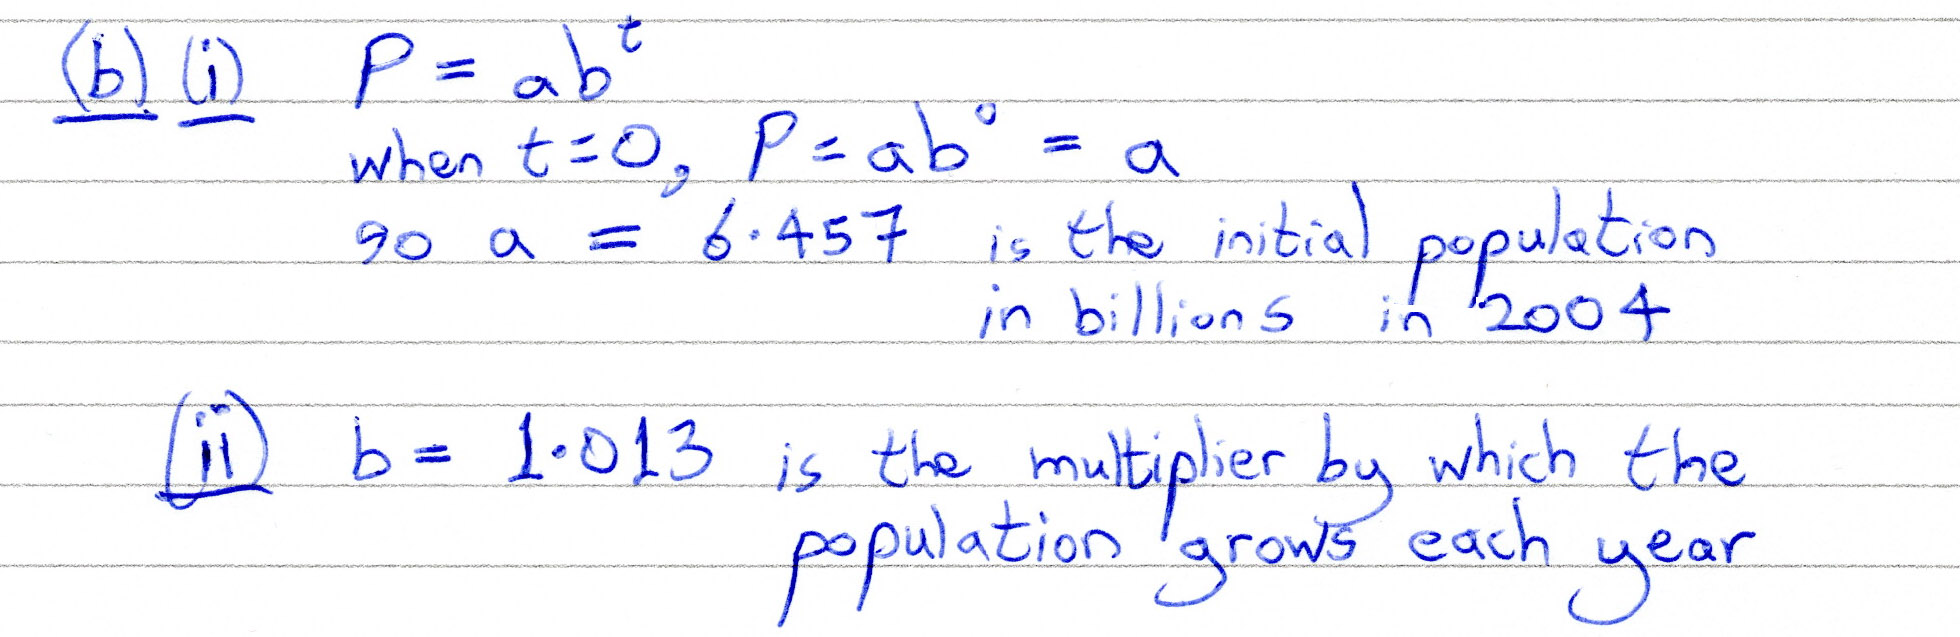 (b) (i) P = ab^t
when t=0, P = ab^0 = a
so a = 6.457 is the initial population
in billions in 2004
(ii) b = 1.013 is the multiplier by which the
population grows each year